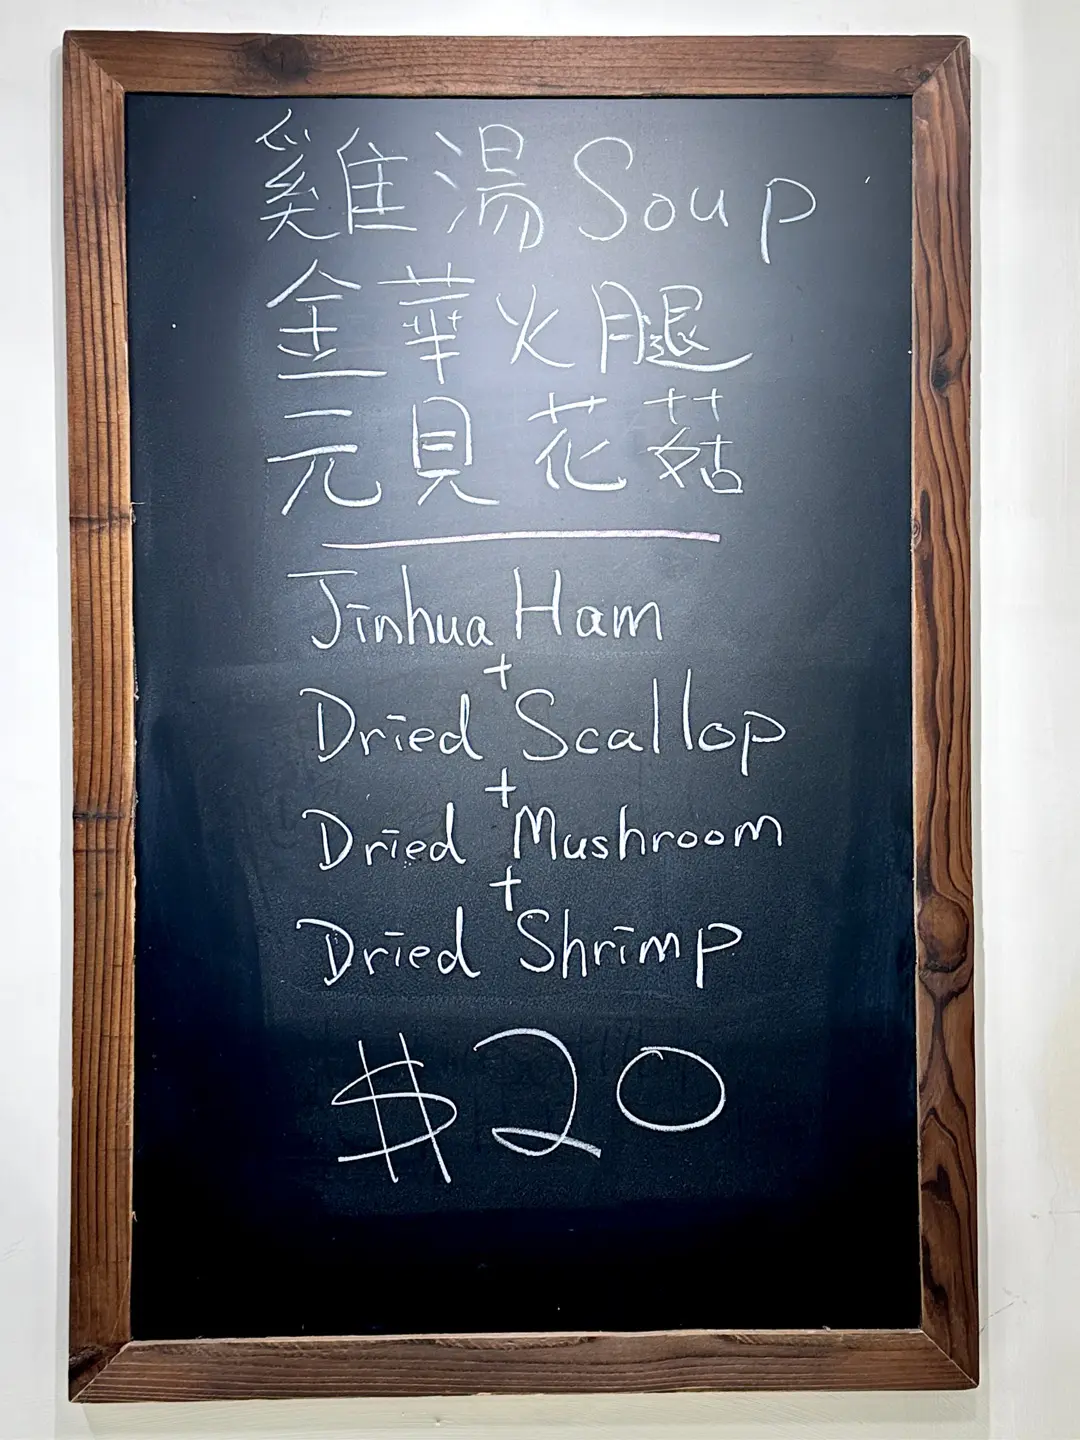 雞湯 Soup
金華火腿
元貝花菇
Jinhua Ham
+
Dried Scallop
+
Dried Mushroom
+
Dried Shrimp
$20